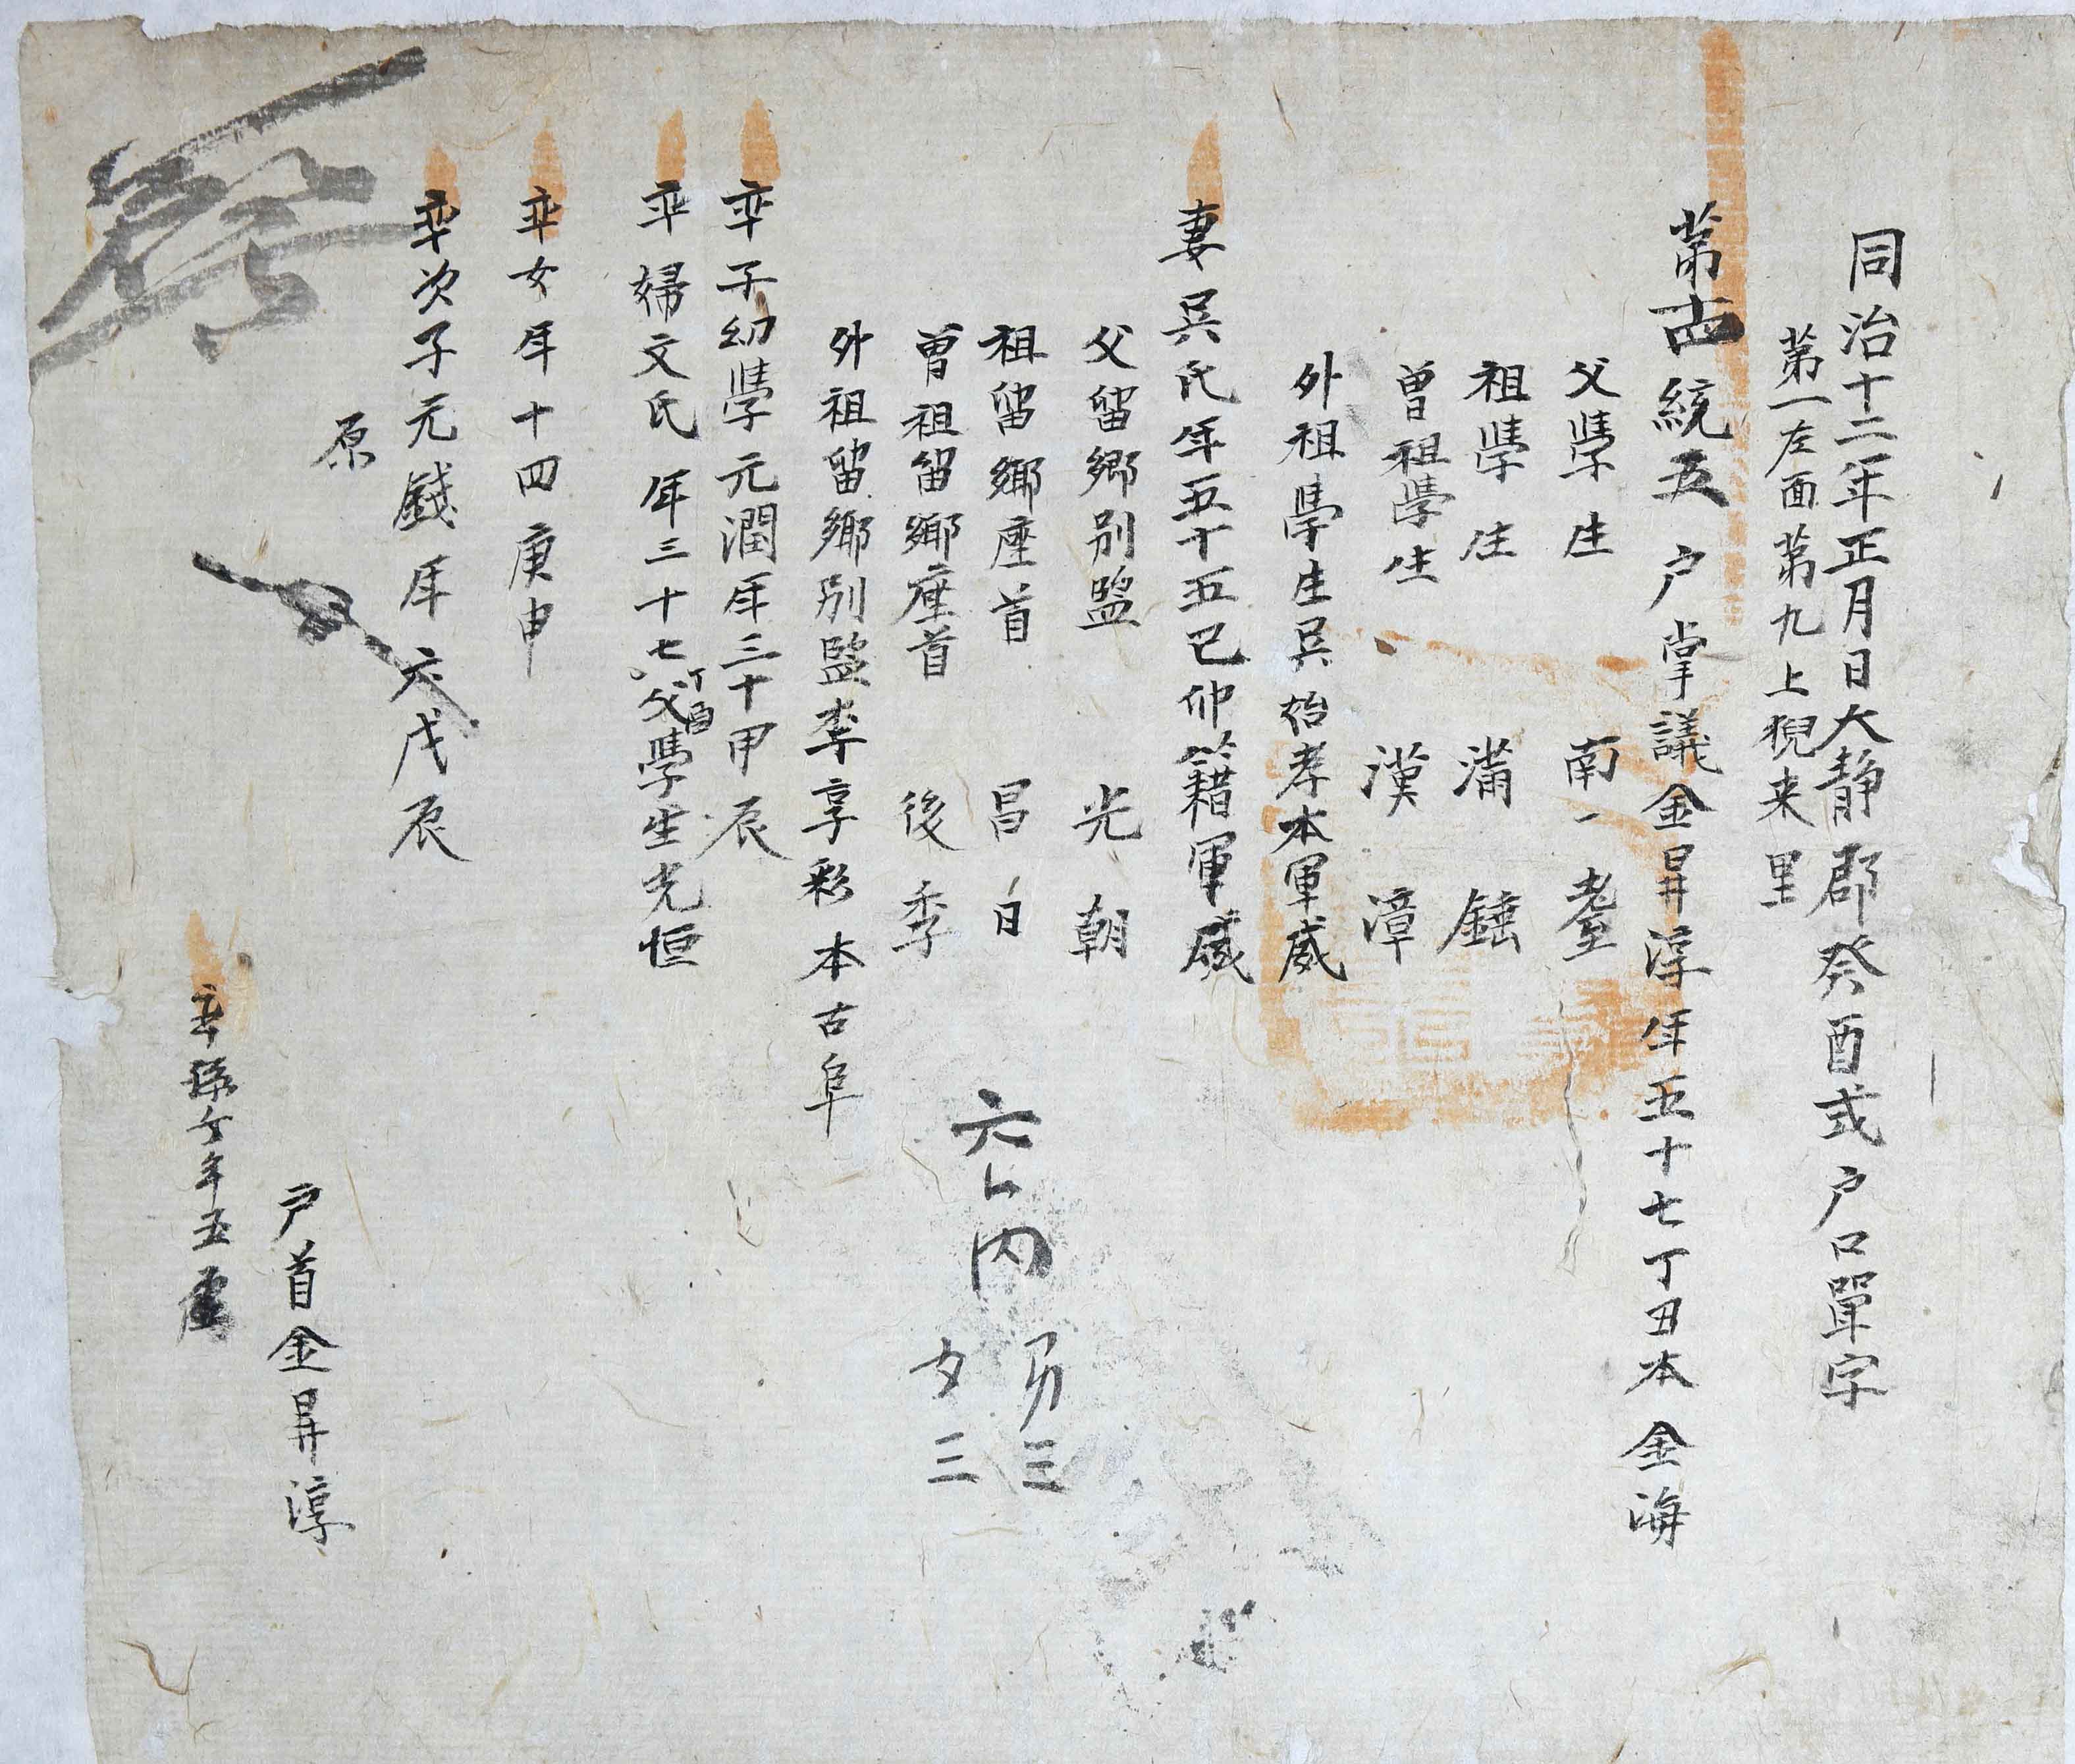 同治十二年正月日大静郡癸酉式户口單字
第一左面第九上猊来里
第十四統五户掌議金昇淳年五十七丁丑本金海
父學生 南耋
祖學生 滿鍾
曾祖學生 漢漳
外祖學生吳始孝本軍威
妻吳氏年五十五己卯籍軍威
父留鄉别監 光朝
祖留鄉座首 昌白
曾祖留鄉座首 後季
外祖留鄉别監李享彩本古阜
六卜内
男三
女三
率子幼學元潤年三十甲辰
率婦文氏年三十七丁酉父學生光恒
率女年十四庚申
率次子元錢年六戊辰
原
户首金昇淳
率孫女年五